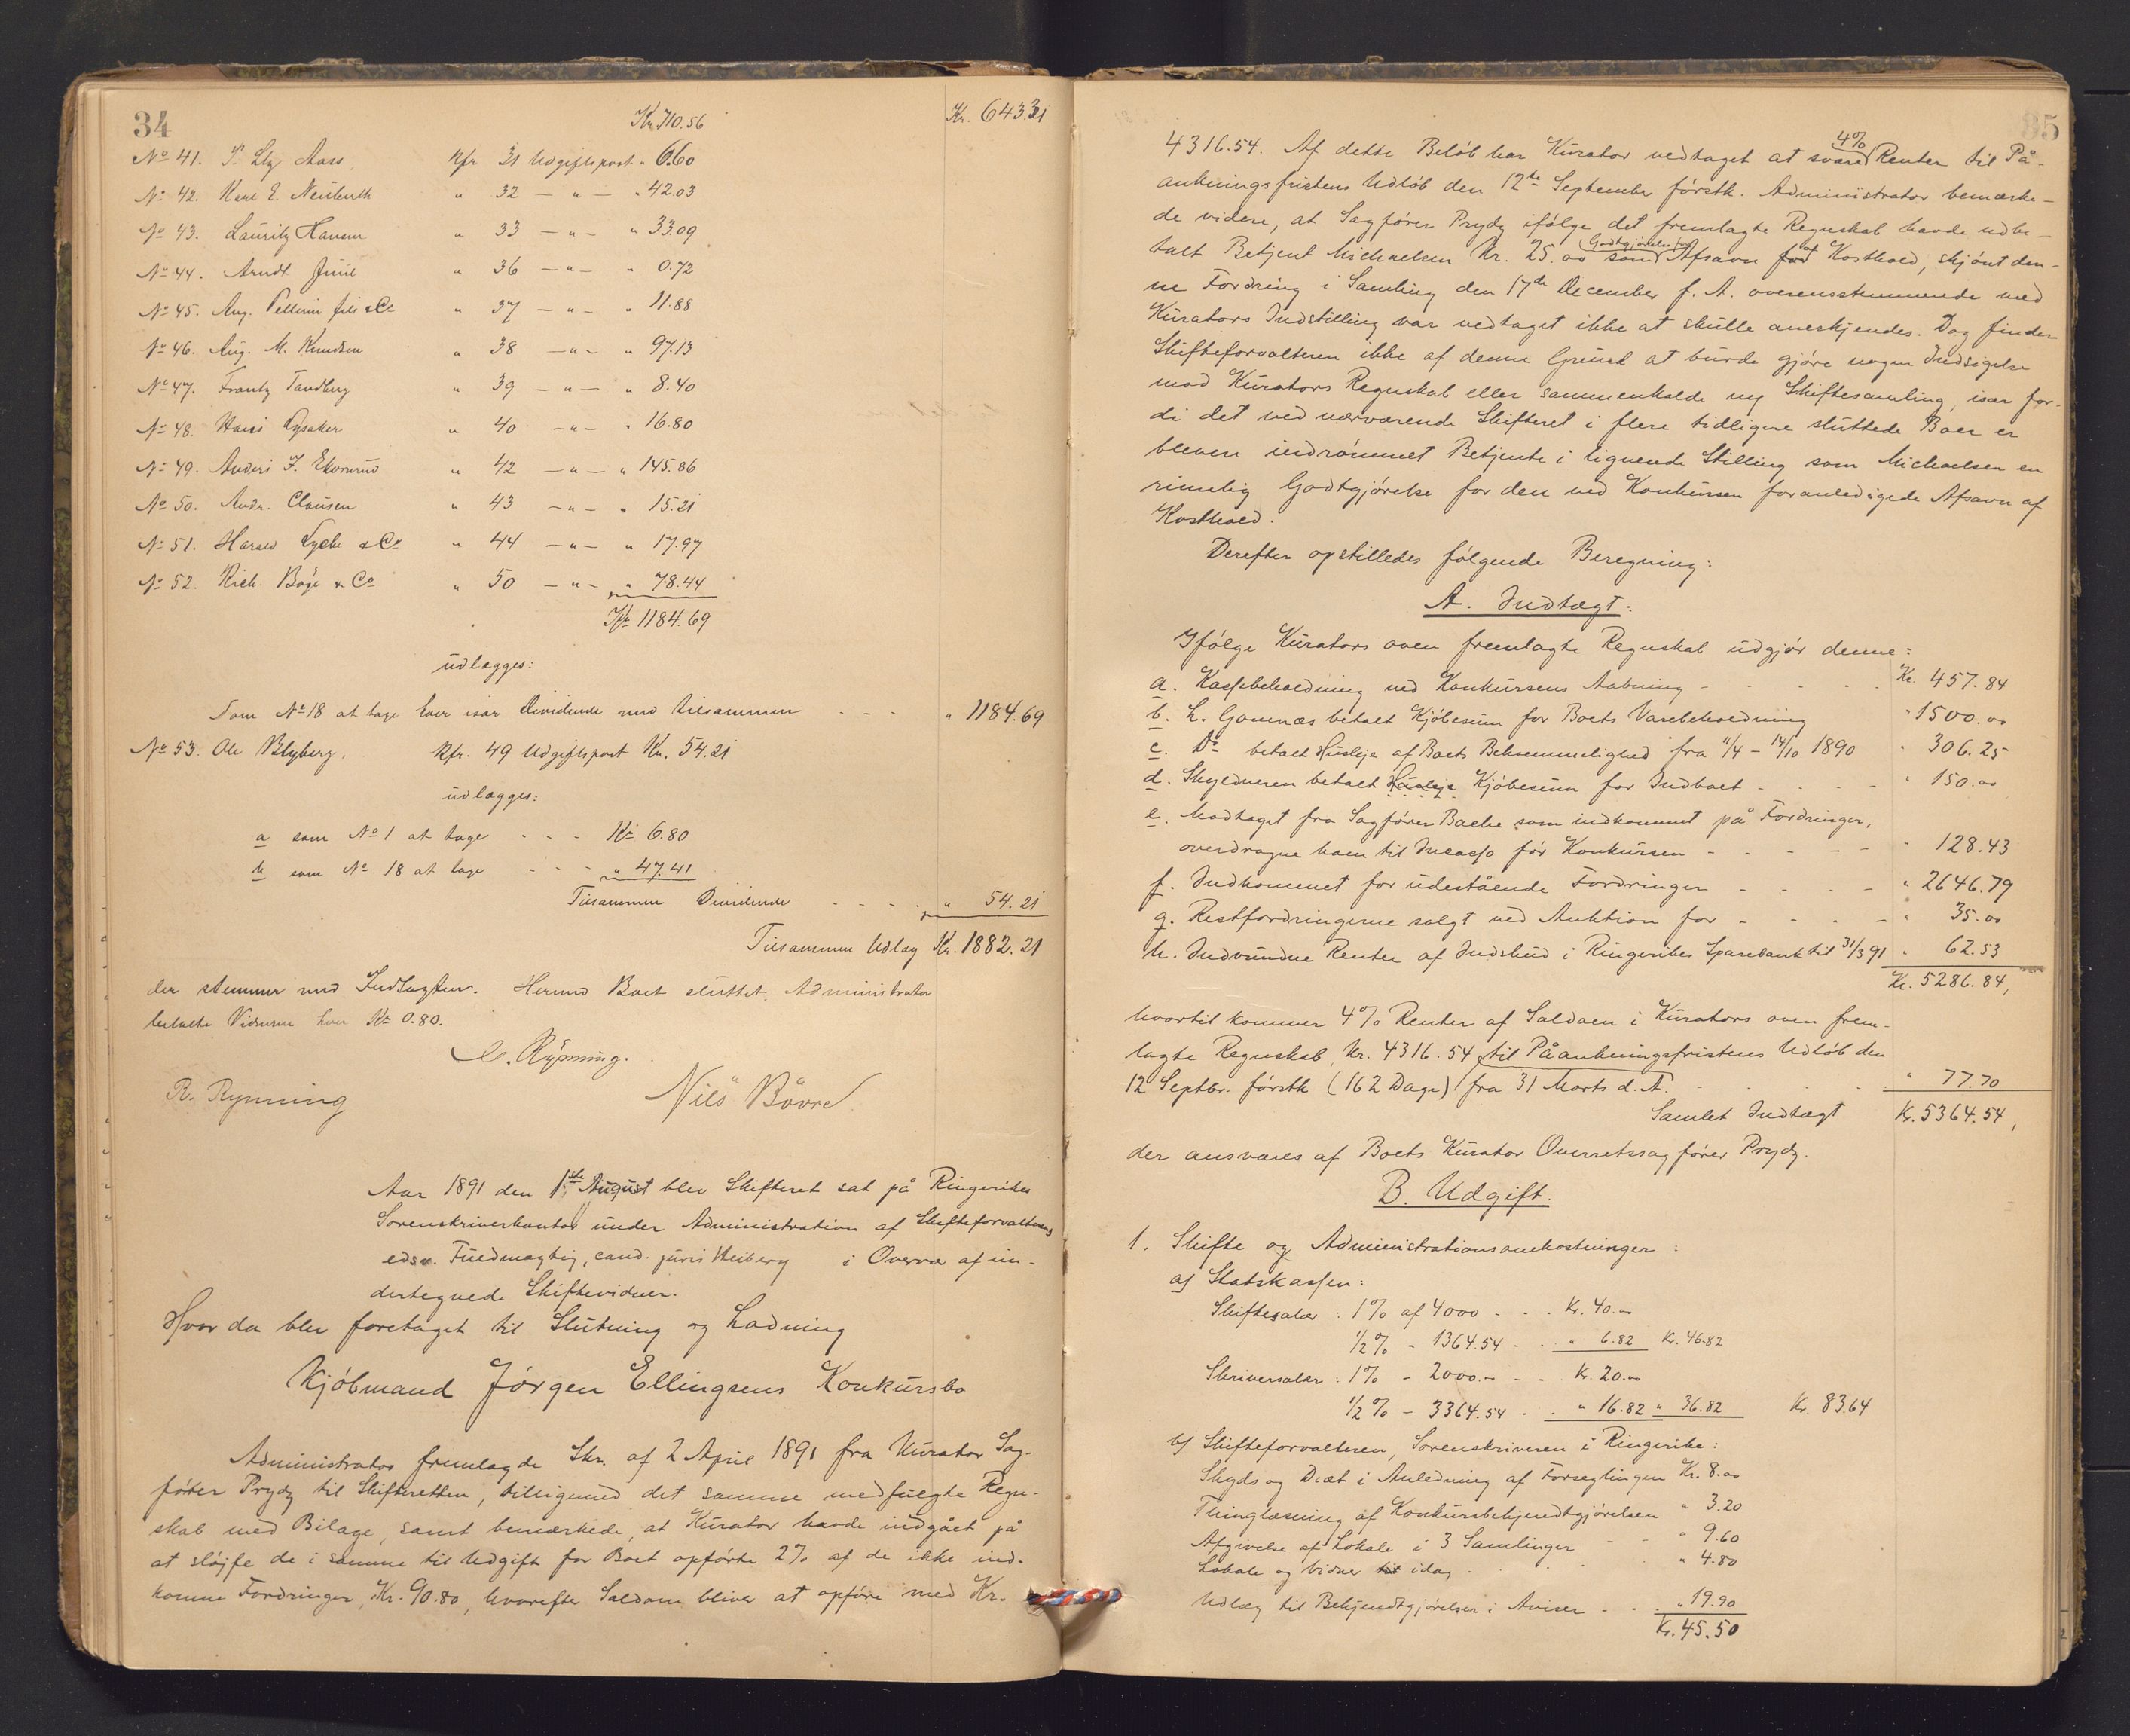 34
Kr. 710.56 Kr. 643.31
No 41. P. Ltz Aass Kfr 31 Udgiftspost " 6.60
No 42. Karl E. Neuberth " 32 — " — " 42.03
No 43. Lauritz Hansen " 33 — " — " 33.09
No 44. Arndt Juul " 36 — " — " 0.72
No 45. Aug. Pellerin fils & Co " 37 — " — " 11.88
No 46. Aug. M. Knudsen " 38 — " — " 97.13
No 47. Frantz Tandberg " 39 — " — " 8.40
No 48. Hans Lysaker " 40 — " — " 16.80
No 49. Anders J. " 42 — " — " 145.86
No 50. Andr. Clausen " 43 — " — " 15.21
No 51. Harald Lyche & Co " 44 — " — " 17.97
No 52. Rich. Bøje & Co " 50 — " — " 78.44
Kr 1184.69
udlægges:
Som No 18 at tage hver især Dividende med tilsammen - - - " 1184.69
No 53. Ole Blyberg. Kfr. 49 Udgiftspost Kr. 54.21
udlægges:
a som No 1 at tage - - - Kr 6.80
b som No 18 at tage - - - " 47.41
Tilsammen Dividende - - - - " 54.21
Tilsammen Udlæg Kr. 1882.21
der stemmer med Indtægten. Hermed Boet sluttet. Administrator
betalte Vidnerne hver Kr 0.80.
C. Rynning.
R. Rynning Nils Bøvre
Aar 1891 den 1ste August blev Skifteret sat på Ringerikes
Sorenskriverkontor under Administration af Skifteforvalterens
edsv. Fuldmægtig, cand. juris Heiberg i Overvær af un-
dertegnede Skiftevidner.
Hvor da blev foretaget til Slutning og Lodning
Kjøbmand Jørgen Ellingsens Konkursbo
Administrator fremlagde Skr. af 2 April 1891 fra Kurator Sag-
fører Prydz til Skifteretten, tilligemed det samme medfulgte Regn-
skab med Bilage, samt bemærkede, at Kurator havde indgået på
at sløjfe de i samme til Udgift for Boet opførte 2% af de ikke ind-
komne Fordringer, Kr. 90.80, hvorefter Saldoen bliver at opføre med Kr.
35
4316.54. Af dette Beløb har Kurator vedtaget at svare 4% Renter til På-
ankningsfristens Udløb den 12te September førstk. Administrator bemærke-
de videre, at Sagfører Prydz ifølge det fremlagte Regnskab havde udbe-
talt Betjent Michaelsen Kr. 25.00 som Godtgjørelse for Afsavn af Kosthold, skjønt den-
ne Fordring i Samling den 17de December f. A. overensstemmende med
Kurators Indstilling var vedtaget ikke at skulle anerkjendes. Dog finder
Skifteforvalteren ikke af denne Grund at burde gjøre nogen Indsigelse
mod Kurators Regnskab eller sammenkalde ny Skiftesamling, især for-
di det ved nærværende Skifteret i flere tidligere sluttede Boer er
bleven indrømmet Betjente i lignende Stilling som Michaelsen en
rimelig Godtgjørelse for den ved Konkursen foranledigede Afsavn af
Kosthold.
Derefter opstilledes følgende Beregning:
A. Indtægt:
Ifølge Kurators oven fremlagte Regnskab udgjør denne:
a. Kassebeholdning ved Konkursens Aabning - - - - - Kr. 457.84
b. L. Gomnæs betalt Kjøbesum for Boets Varebeholdning " 1500.00
c. Do betalt Husleje af Boets Bekvemmelighed fra 11/4 - 14/10 1890 " 306.25
d. Skyldneren betalt Husleje Kjøbesum for Indboet - - - - " 150.00
e. Modtaget fra Sagfører Bache som indkommet på Fordringer,
overdragne ham til Incasso før Konkursen - - - - - " 128.43
f. Indkommet for udestående Fordringer - - - - " 2646.79
g. Restfordringerne solgt ved Auktion for - - - - " 35.00
h. Indvundne Renter af Indskud i Ringerikes Sparebank til 31/3 91 " 62.53
Kr. 5286.84,
hvortil kommer 4% Renter af Saldoen i Kurators oven frem-
lagte Regnskab, Kr. 4316.54, til Påankningsfristens Udløb den
12 Septbr. førstk (162 Dage) fra 31 Marts d. A. - - - " 77.70
Samlet Indtægt Kr. 5364.54,
der ansvares af Boets Kurator Overretssagfører Prydz.
B. Udgift.
1. Skifte og Administrationsomkostninger:
a) Statskassen:
Skiftesalær: 1% af 4000 - - - Kr. 40.00
1/2% - 1364.54 - - " 6.82 Kr. 46.82
Skriversalær: 1% - 2000.00 - - Kr. 20.00
1/2% - 3364.54 - - " 16.82 " 36.82 Kr. 83.64
b) Skifteforvalteren, Sorenskriveren i Ringerike:
Skyds og Diæt i Anledning af Forseglingen Kr. 8.00
Thinglæsning af Konkursbekjendtgjørelsen " 3.20
Afgivelse af Lokale i 3 Samlinger - - " 9.60
Lokale og Vidner til idag - - - " 4.80
Udlæg til Bekjendtgjørelser i Aviser - - " 19.90
Kr. 45.50